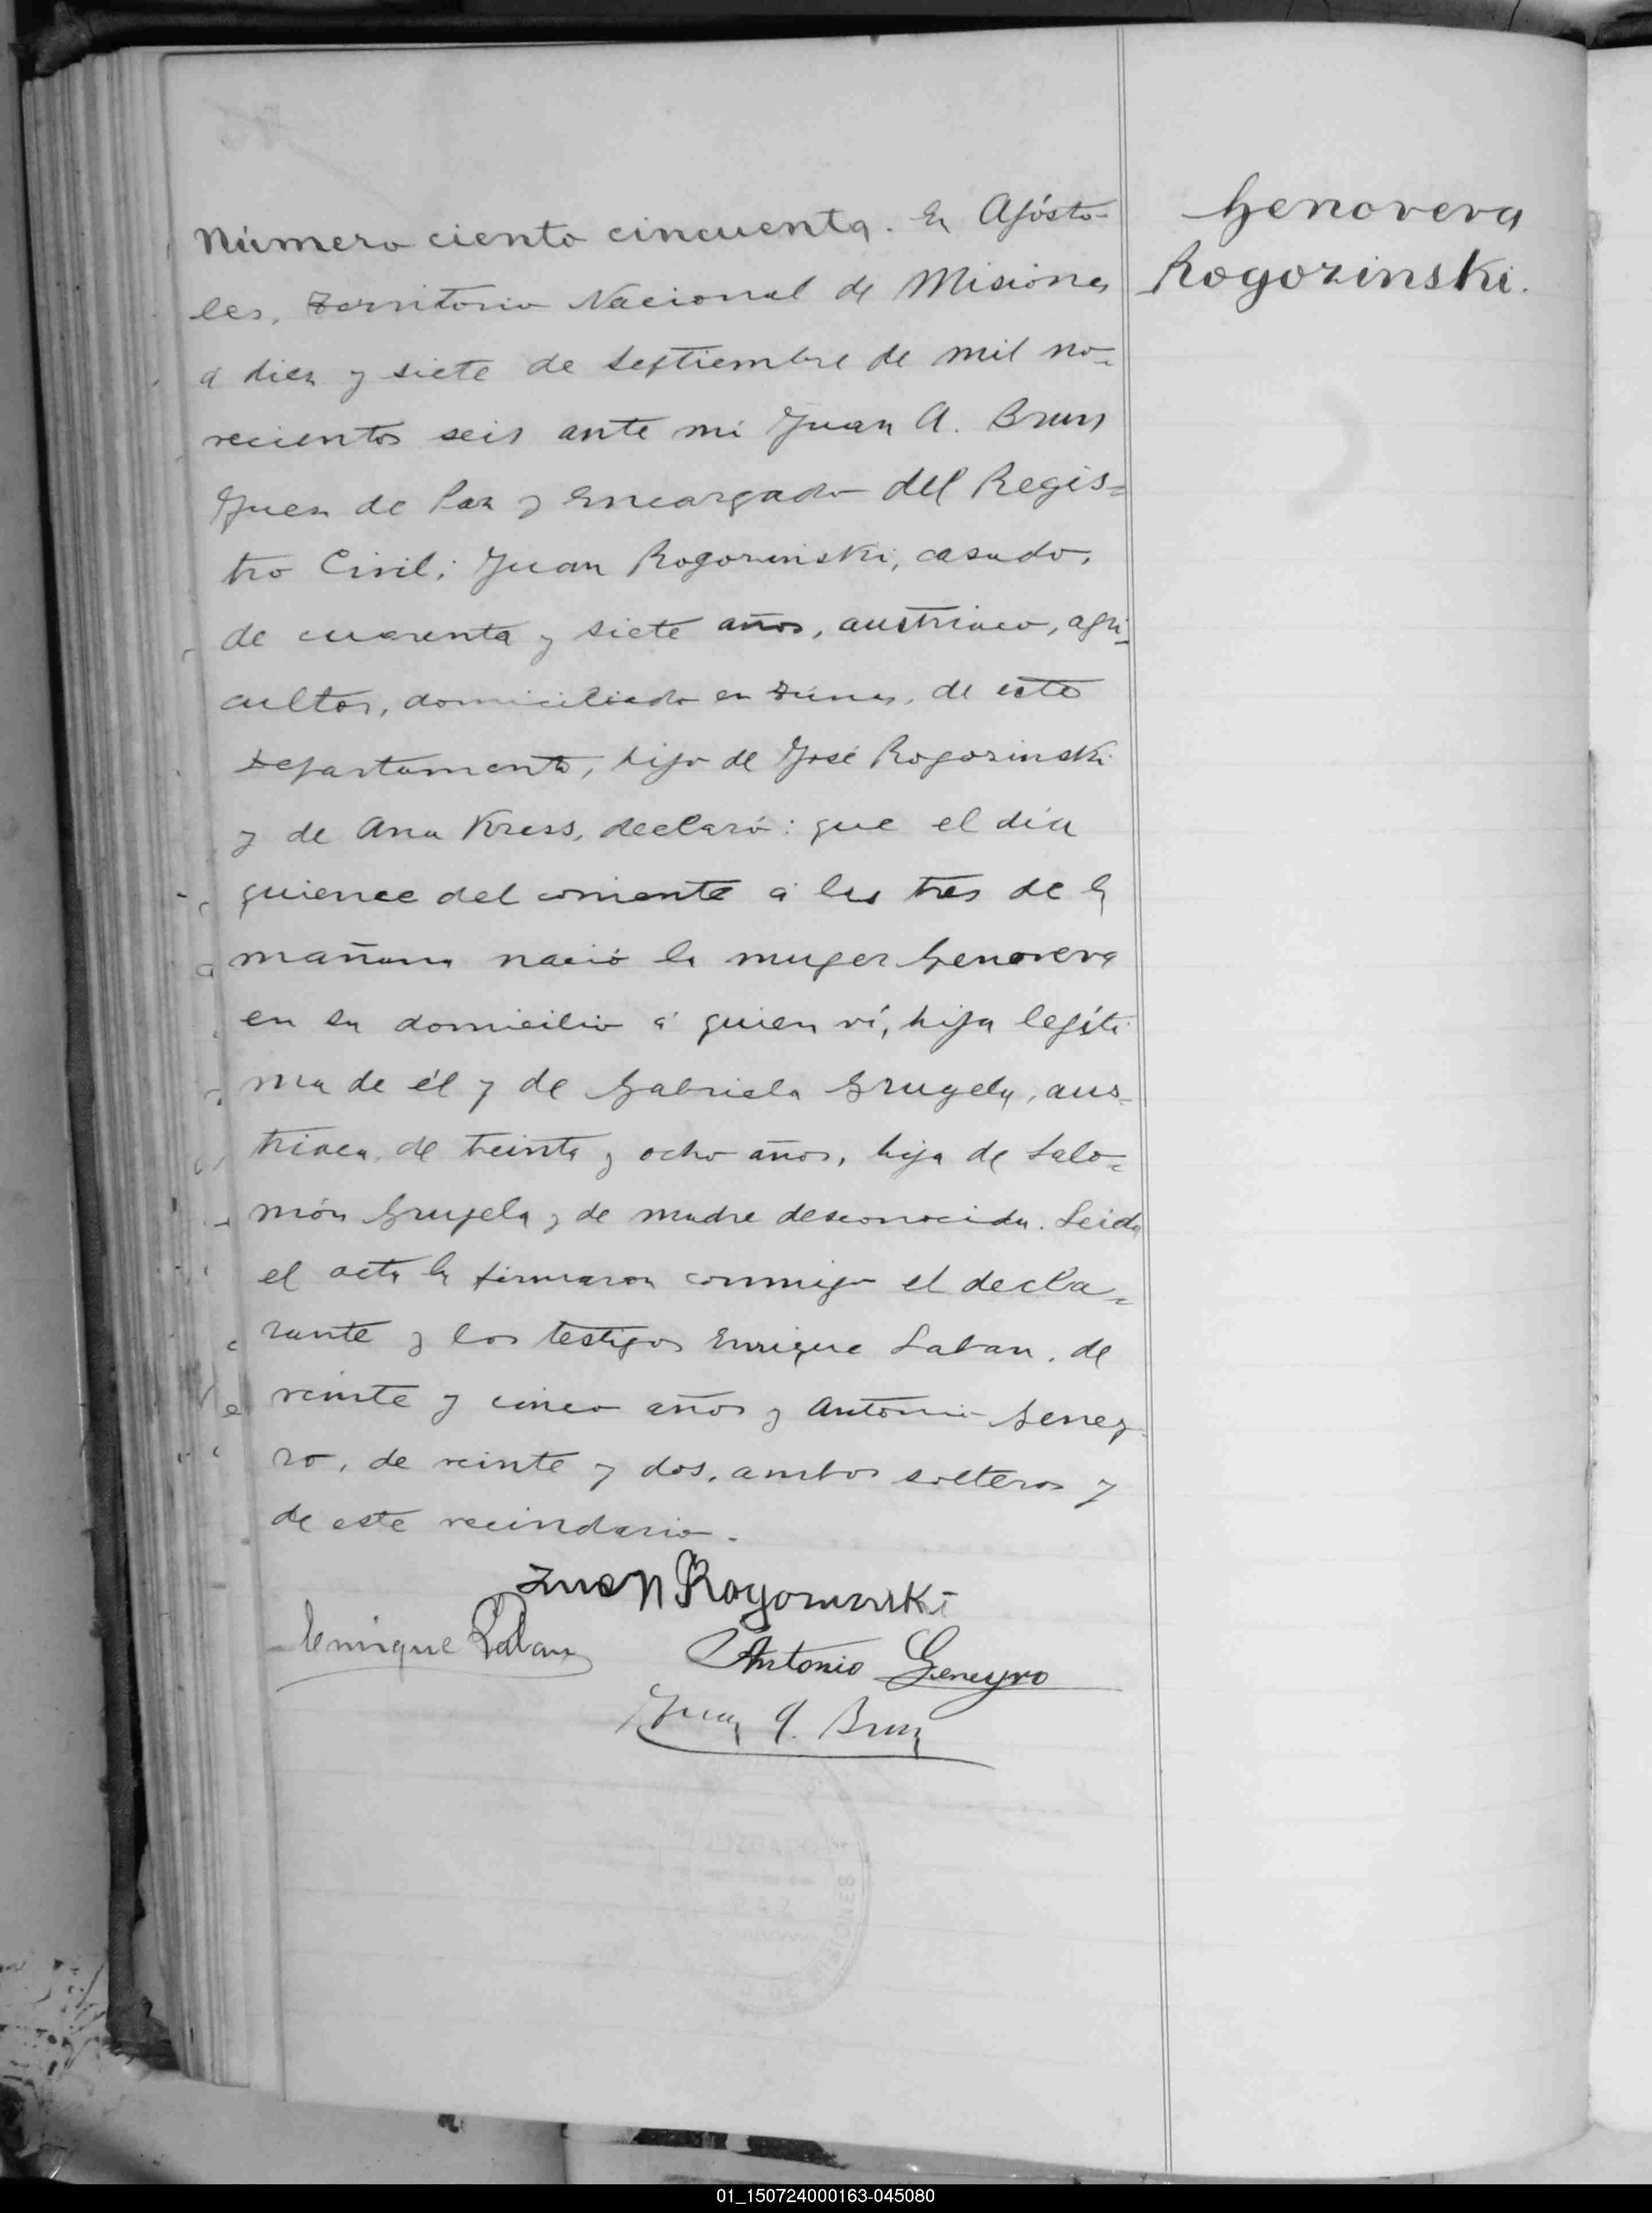 Número ciento cincuenta. En Apósto-
les, Territorio Nacional de Misiones
á diez y siete de Septiembre de mil no-
vecientos seis ante mí Juan A. Brun
Juez de Paz y Encargado del Regis=
tro Civil; Juan Rogozinski, casado,
de cuarenta y siete años, austriaco, agri-
cultor, domiciliado en de este
Departamento, hijo de José Rogozinski
y de Ana Kress, declaró: que el día
quience del corriente á las tres de la
mañana nació la muger Genoveva
en su domicilio á quien ví, hija legíti
ma de él y de Gabriela Grugela, aus-
triaca, de treinta y ocho años, hija de Salo=
món Grugela y de madre desconocida. Leida
el acta la firmaron conmigo el decla=
rante y los testigos Enrique Laban, de
veinte y cinco años y Antonio Geney-
ro, de veinte y dos, ambos solteros y
de este vecindario.
Juan Rogozinski
Enrique Laban Antonio Geneyro
Juan A. Brun
Genoveva
Rogozinski.
MISIONES
01_150724000163-045080